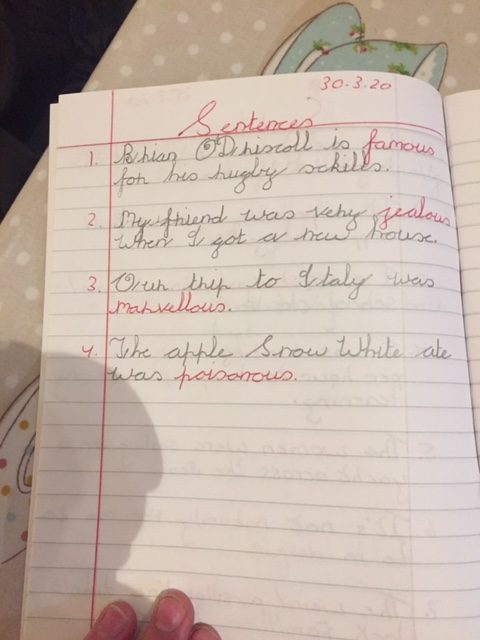 30.3.20
Sentences
1. Brian O'Driscoll is famous
for his rugby sckills.
2. My friend was very jealous
when I got a new house.
3. Our trip to Italy was
marvellous.
4. The apple Snow White ate
was poisonous.